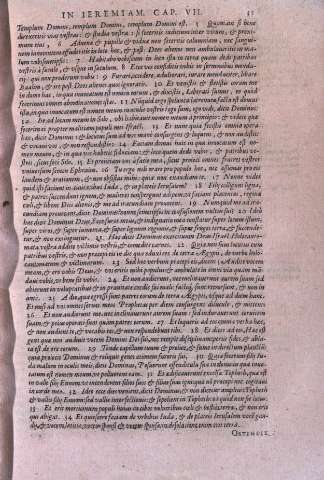 IN IEREMIAM. CAP. VII. 51
Templum Domini, templum Domini, templum Domini est. 5 Quoniam si bene
direxeritis vias vestras: & studia vestra: si feceritis iudicium inter virum, & proxi-
mum eius, 6 Advenæ & pupillo & viduæ non feceritis calumniam, nec sangui-
nem innocentem effuderitis in loco hoc, & post Deos alienos non ambulaveritis in ma-
lum vobismetipsis: 7 Habitabo vobiscum in loco isto in terra quam dedi patribus
vestris à sæculo, & usque in sæculum. 8 Ecce vos confiditis vobis in sermonibus menda-
cij: qui non proderunt vobis: 9 Furari, occidere, adulterari, iurare mendaciter, libare
Baalim, & ire post Deos alienos quos ignoratis. 10 Et venistis & stetistis coram me
in domo hac, in qua invocatum est nomen meum, & dixistis, Liberati sumus, eo quod
fecerimus omnes abominationes istas. 11 Nunquid ergo spelunca latronum facta est domus
ista, in qua invocatum est nomen meum in oculis vestris? ego sum, ego vidi, dicit Dominus:
12 Ite ad locum meum in Silo, ubi habitavit nomen meum à principio: & videte quæ
fecerim ei propter malitiam populi mei Israël: 13 Et nunc quia fecistis omnia opera
hæc, dicit Dominus: & locutus sum ad vos mane consurgens & loquens, & non audistis:
& vocavi vos, & non respondistis: 14 Faciam domui huic in qua invocatum est no-
men meum, & in qua vos habetis fiduciam: & loco quem dedi vobis, & patribus ve-
stris, sicut feci Silo. 15 Et proiiciam vos à facie mea, sicut proieci omnes fratres vestros
universum semen Ephraim. 16 Tu ergo noli orare pro populo hoc, nec assumas pro eis
laudem & orationem, & non obsistas mihi: quia non exaudiam te. 17 Nonne vides
quid isti faciunt in civitatibus Iuda, & in plateis Ierusalem? 18 Filij colligunt ligna,
& patres succendunt ignem, & mulieres conspergunt adipem, ut faciant placentas, reginæ
cæli, & libent Dijs alienis, & me ad iracundiam provocent. 19 Nunquid me ad ira-
cundiam provocant, dicit Dominus? nonne semetipsos in confusionem vultus sui? 20 Ideo
hæc dicit Dominus Deus, Ecce furor meus, & indignatio mea conflatur super locum istum,
super viros, & super iumenta, & super lignum regionis, & super fruges terræ, & succende-
tur, & non extinguetur. 21 Hæc dicit Dominus exercituum Deus Israël, Holocauto-
mata vestra addite victimis vestris, & comedite carnes. 22 Quia non sum locutus cum
patribus vestris, & non præcepi eis in die qua eduxi eos de terra Ægypti, de verbo holo-
cautomatum & victimarum: 23 Sed hoc verbum præcepi eis, dicens: Audite vocem
meam, & ero vobis Deus, & vos eritis mihi populus: & ambulate in omni via quam man-
davi vobis, ut bene sit vobis. 24 Et non audierunt, nec inclinaverunt aurem suam: sed
abierunt in voluptatibus & in pravitate cordis sui mali: factique sunt retrorsum, & non in
ante. 25 A die qua egressi sunt patres eorum de terra Ægypti, usque ad diem hanc.
Et misi ad vos omnes servos meos Prophetas per diem consurgens diluculo, & mittens.
26 Et non audierunt me, nec inclinaverunt aurem suam: sed induraverunt cervicem
suam: & peius operati sunt quam patres eorum. 27 Et loqueris ad eos omnia verba hæc,
& non audient te, & vocabis eos, & non respondebunt tibi. 28 Et dices ad eos, Hæc est
gens quæ non audivit vocem Domini Dei sui, nec recepit disciplinam: perijt fides, & abla-
ta est de ore eorum. 29 Tonde capillum tuum, & proiice, & sume in directum planctum:
quia proiecit Dominus & reliquit generationem furoris sui, 30 Quia fecerunt filij Iu-
da malum in oculis meis, dicit Dominus, Posuerunt offendicula sua in domo in qua invoca-
tum est nomen meum, ut polluerent eam. 31 Et ædificaverunt excelsa Topheth, quæ est
in valle filij Ennom: ut incenderent filios suos & filias suas igni: quæ non præcepi, nec cogitavi
in corde meo. 32 Ideo ecce dies venient, dicit Dominus, & non dicetur amplius Topheth
& vallis filij Ennom: sed vallis interfectionis: & sepelient in Topheth, eo quod non sit locus.
33 Et erit morticinum populi huius in cibos volucribus cæli & bestijs terræ, & non erit
qui abigat. 34 Et quiescere faciam de urbibus Iuda, & de plateis Ierusalem vocem gau-
dij, & vocem lætitiæ, vocem sponsi & vocem sponsæ: in desolationem enim erit terra.
OSTENDIT,